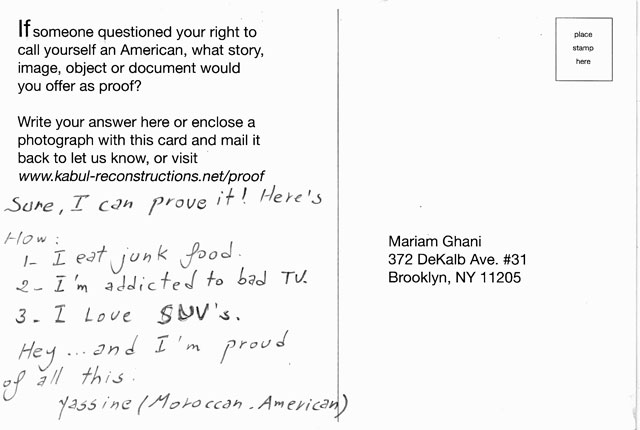 If someone questioned your right to
call yourself an American, what story,
image, object or document would
you offer as proof?
Write your answer here or enclose a
photograph with this card and mail it
back to let us know, or visit
www.kabul-reconstructions.net/proof
Sure, I can prove it! Here's
How:
1- I eat junk food.
2- I'm addicted to bad TV.
3- I Love SUV's.
Hey...and I'm proud
of all this.
Yassine (Moroccan-American)
place
stamp
here
Mariam Ghani
372 DeKalb Ave. #31
Brooklyn, NY 11205